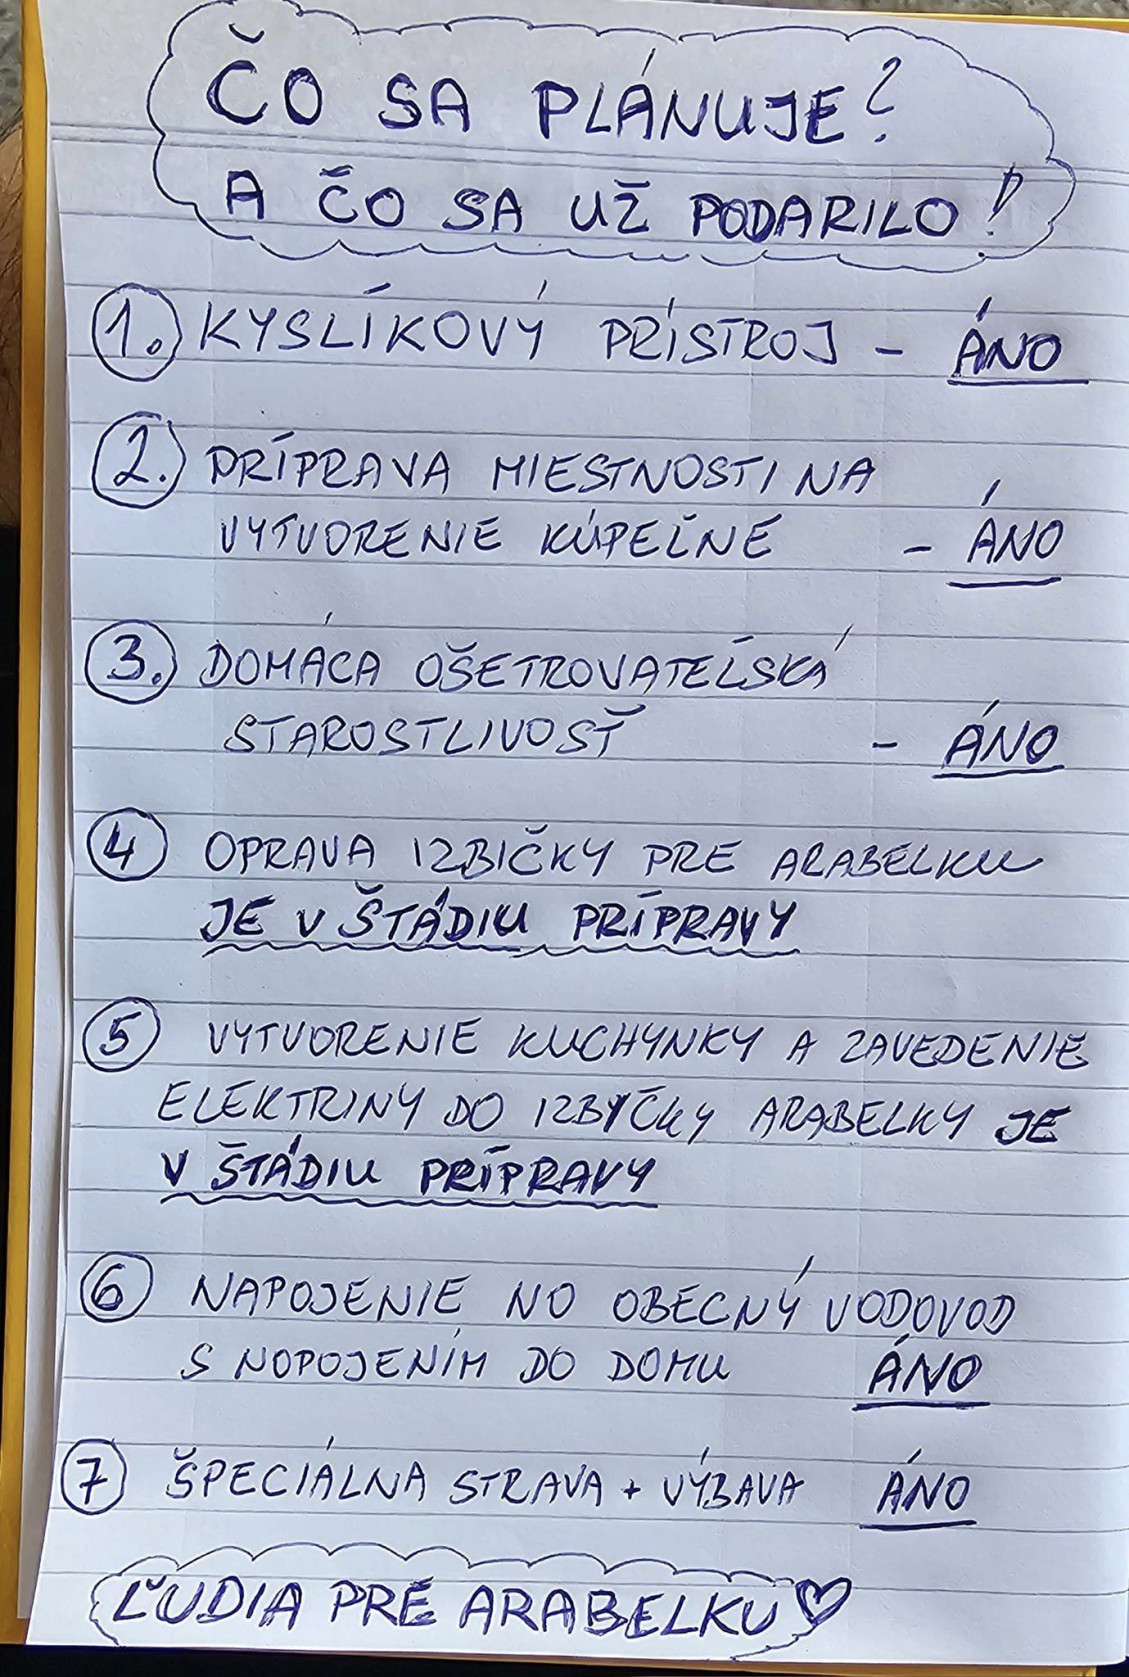 ČO SA PLÁNUJE?
A ČO SA UŽ PODARILO!
1. KYSLÍKOVÝ PRÍSTROJ - ÁNO
2. PRÍPRAVA MIESTNOSTI NA
VYTVORENIE KÚPEĽNE - ÁNO
3. DOMÁCA OŠETROVATEĽSKÁ
STAROSTLIVOSŤ - ÁNO
4 OPRAVA IZBIČKY PRE ARABELKU
JE V ŠTÁDIU PRÍPRAVY
5 VYTVORENIE KUCHYNKY A ZAVEDENIE
ELEKTRINY DO IZBYČKY ARABELKY JE
V ŠTÁDIU PRÍPRAVY
6 NAPOJENIE NO OBECNÝ VODOVOD
S NOPOJENÍM DO DOMU ÁNO
7 ŠPECIÁLNA STRAVA + VÝBAVA ÁNO
ĽUDIA PRE ARABELKU ♡